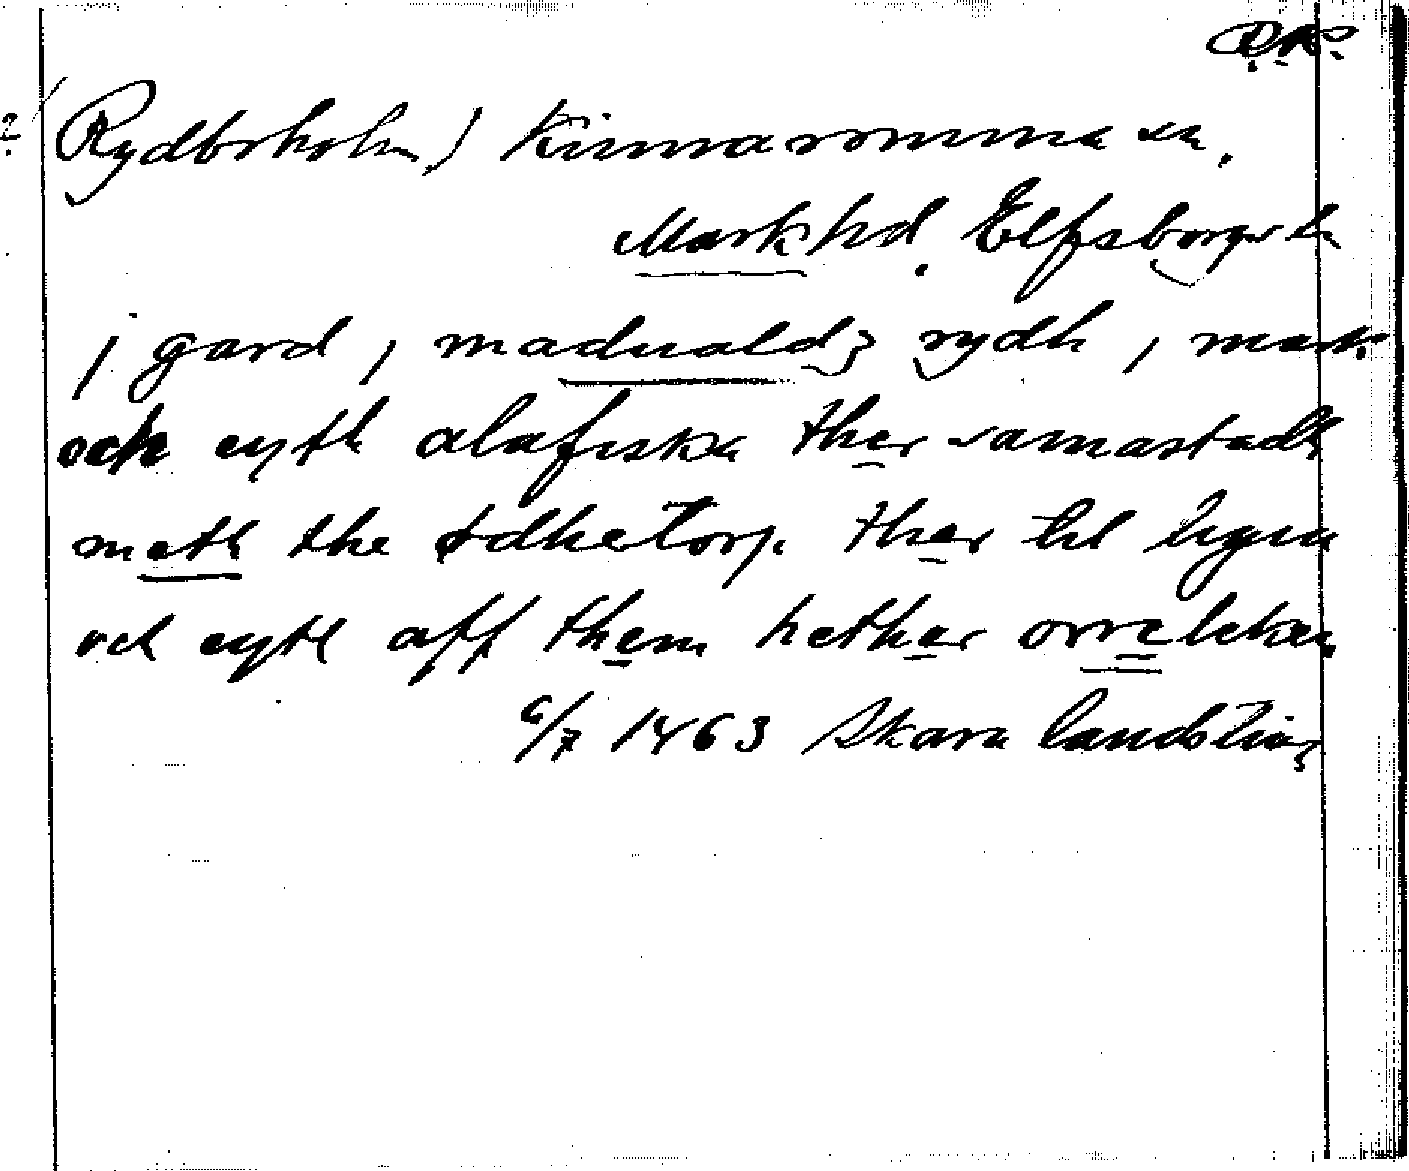 ? Rydboholm) Kinnaromma sn.
Mark hd. Elfsborgs l
j gard, maduald rydh, mark
och eyth alafiska ther samastadh
meth the ødhetorp. ther til ligia
och eyth aff them hether orreleken
6/7 1463 Skara landsting